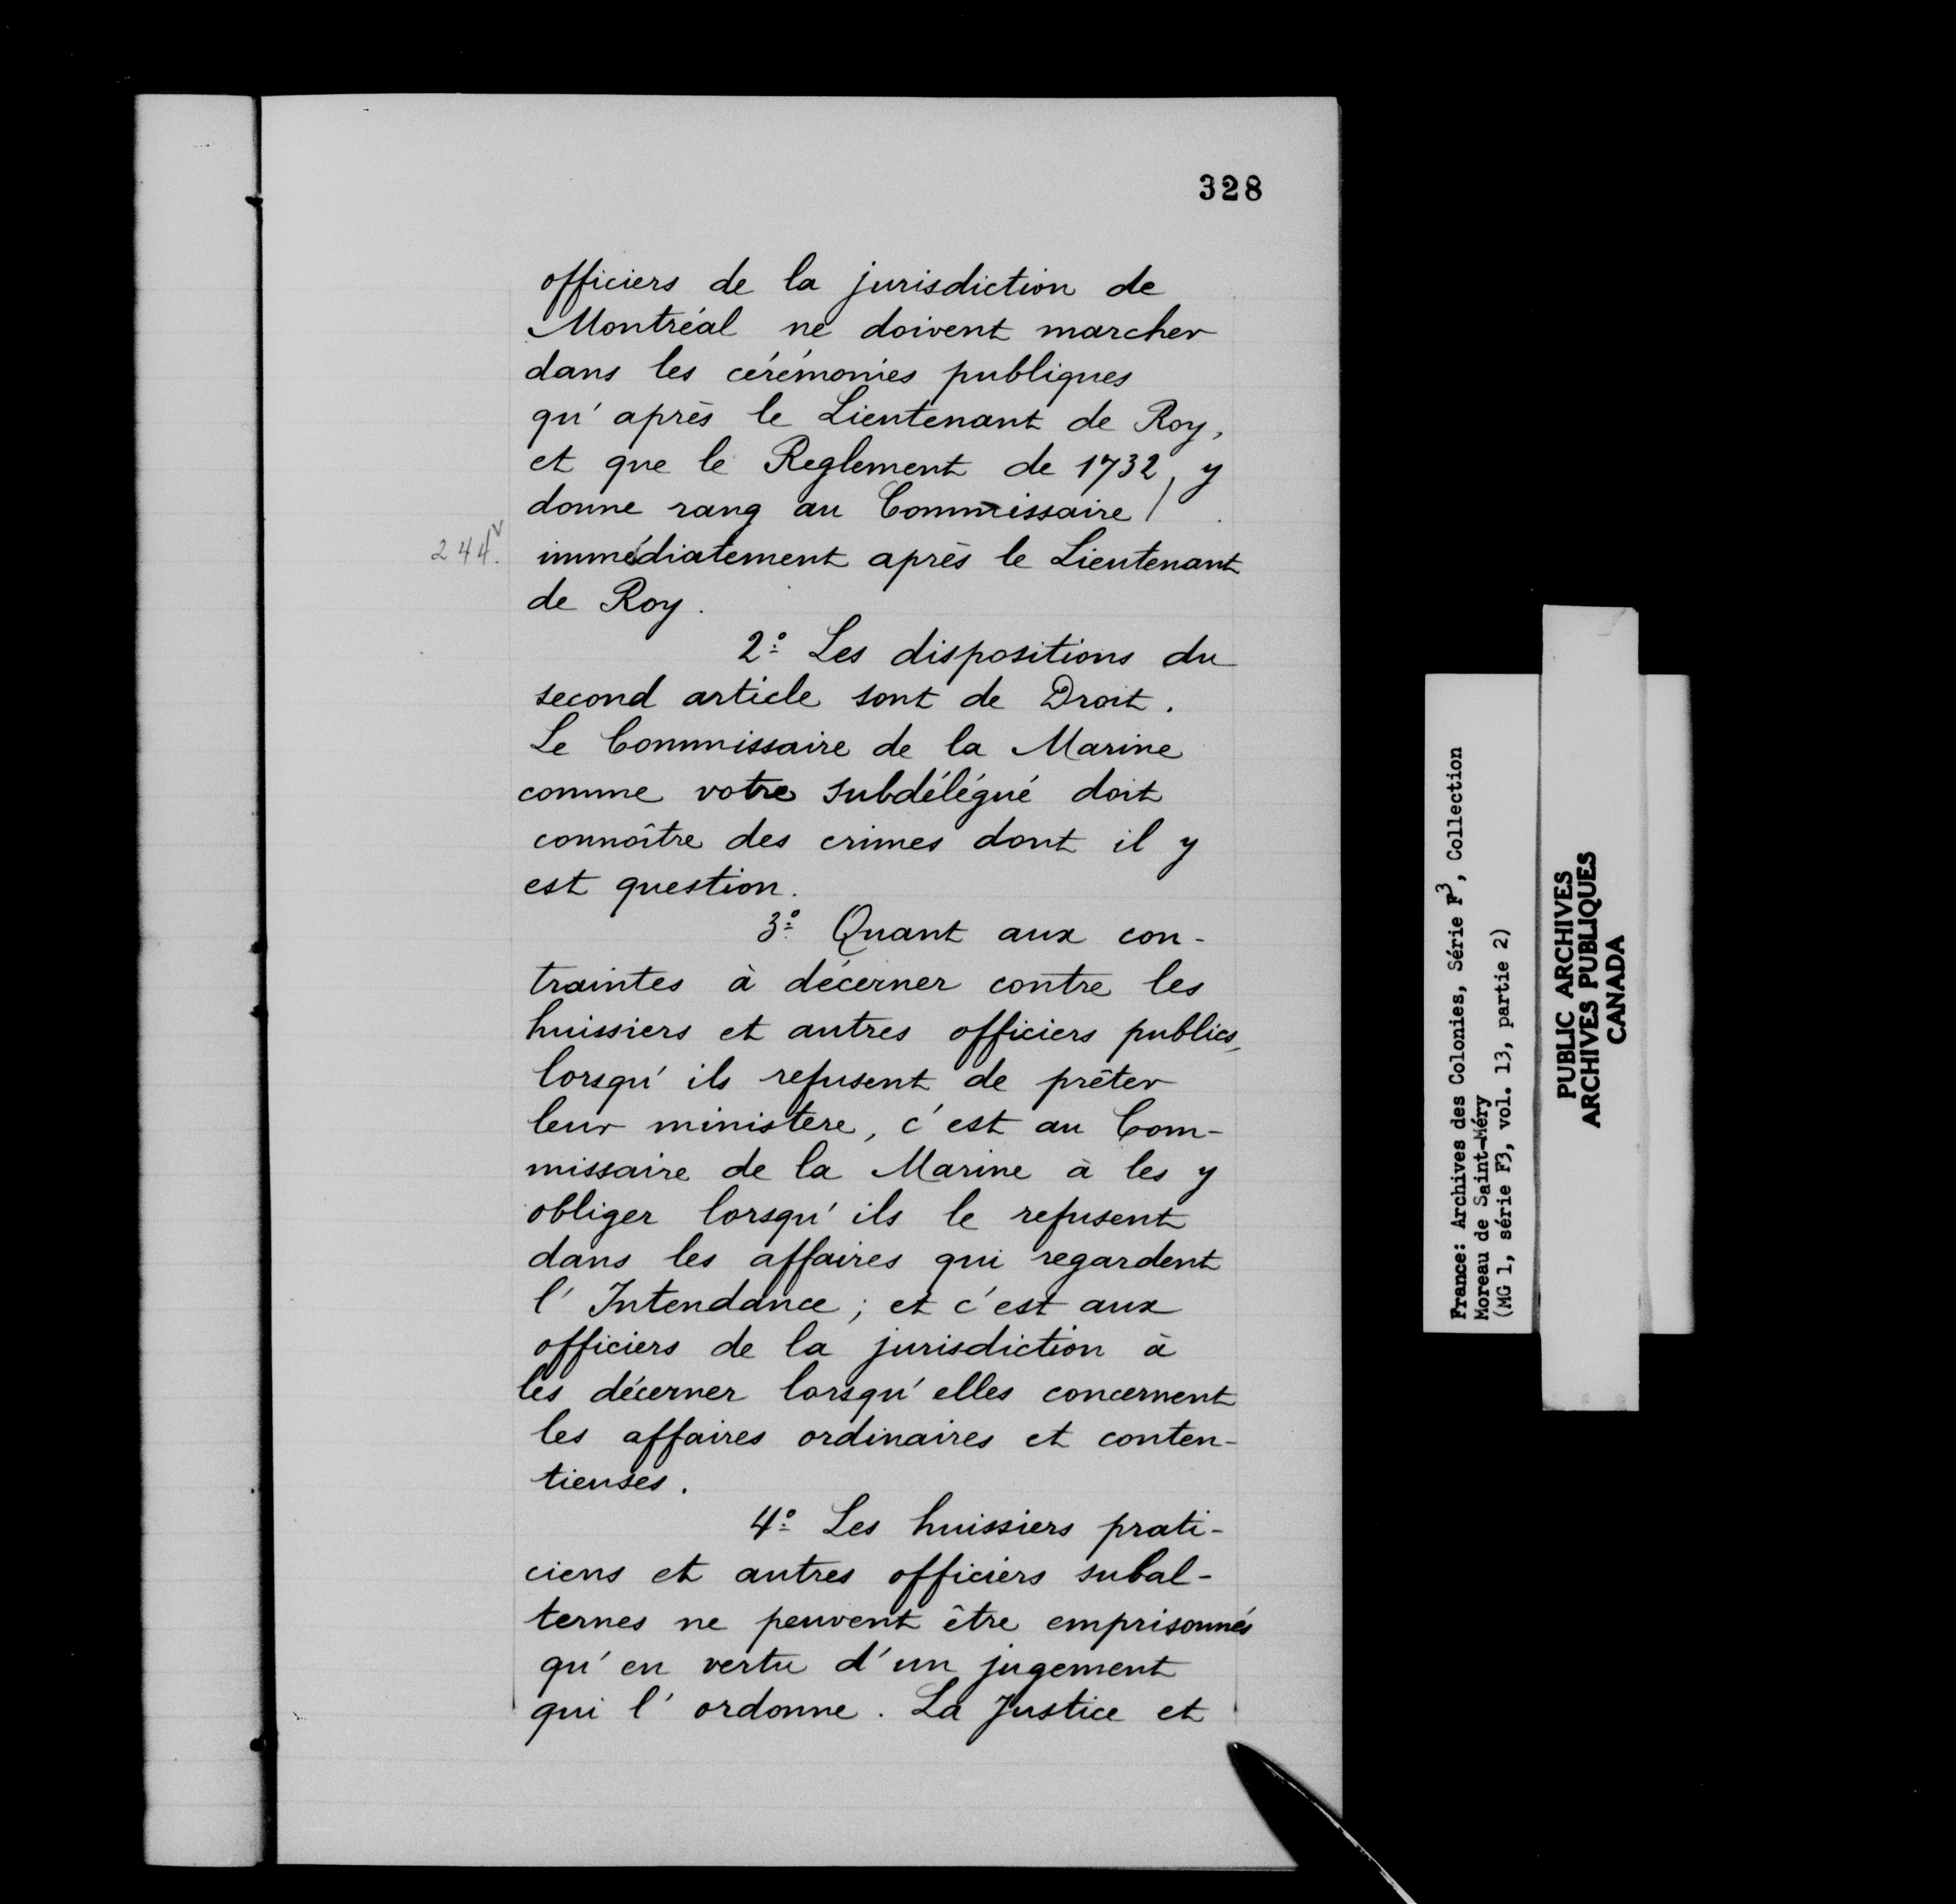 328
officiers de la jurisdiction de
Montréal ne doivent marcher
dans les cérémonies publiques
qu'après le Lieutenant de Roy,
et que le Reglement de 1732, y
donne rang au Commissaire /
244v.
immédiatement après le Lieutenant
de Roy.
2º Les dispositions du
second article sont de Droit.
Le Commissaire de la Marine
comme votre subdélégué doit
connoître des crimes dont il y
est question.
3º Quant aux con-
traintes à décerner contre les
huissiers et autres officiers publics,
lorsqu'ils refusent de prêter
leur ministere, c'est au Com-
missaire de la Marine à les y
obliger lorsqu'ils le refusent
dans les affaires qui regardent
l'Intendance; et c'est aux
officiers de la jurisdiction à
les décerner lorsqu'elles concernent
les affaires ordinaires et conten-
tieuses.
4º Les huissiers prati-
ciens et autres officiers subal-
ternes ne peuvent être emprisonnés
qu'en vertu d'un jugement
qui l'ordonne. La Justice et
France: Archives des Colonies, Série F³, Collection
Moreau de Saint-Méry
(MG 1, série F3, vol. 13, partie 2)
PUBLIC ARCHIVES
ARCHIVES PUBLIQUES
CANADA